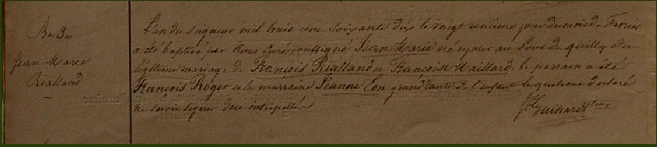 Be De
Jean Marie
Réalland
L'an du seigneur mil huit cent soixante dix le vingt jour du mois de
a été baptisé par Nous Curé soussigné Jean Marie né hier au de quilly du
légitime mariage de François Réalland & Françoise Maillard le parrain a été
François Roger et la marraine Jeanne Eon grand'tante de l'enfant lesquels ont déclaré
ne savoir signer de ce interpellés
Guihard